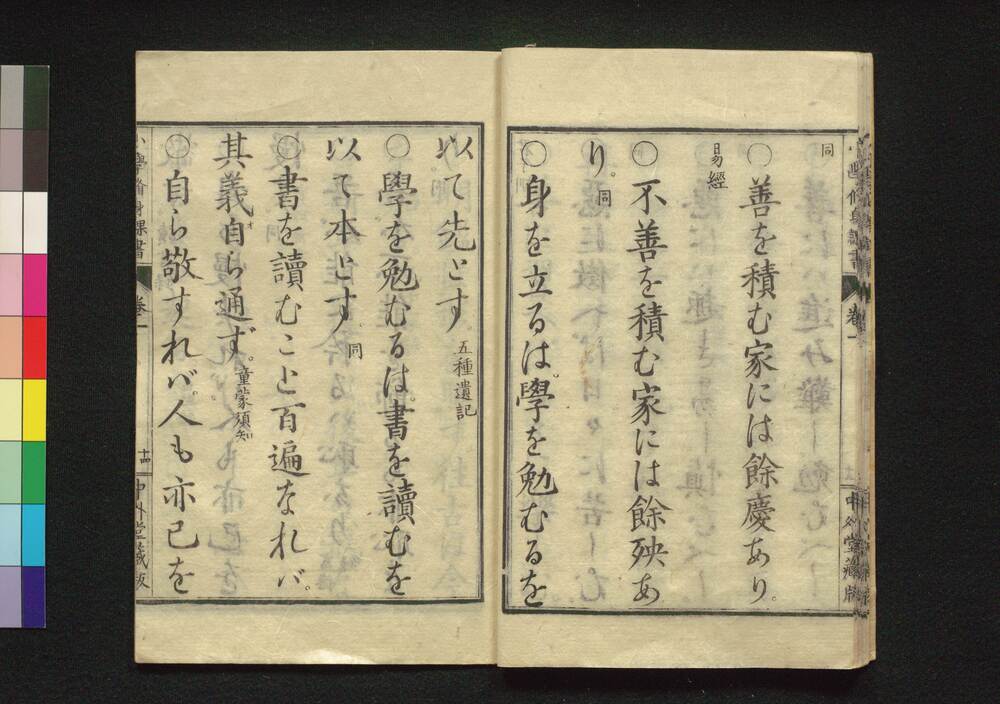 同
○善を積む家には餘慶あり。
易經
○不善を積む家には餘殃あ
り。同
○身を立るは。學を勉むるを
以て先とす 五種遺記
○學を勉むるは。書を讀むを
以て本とす 同
○書を讀むこと百遍なれバ。
其義自ら通ず。童蒙須知
○自ら敬すれバ。人も亦己を
小學脩身課書
卷一
十四
中外堂藏版